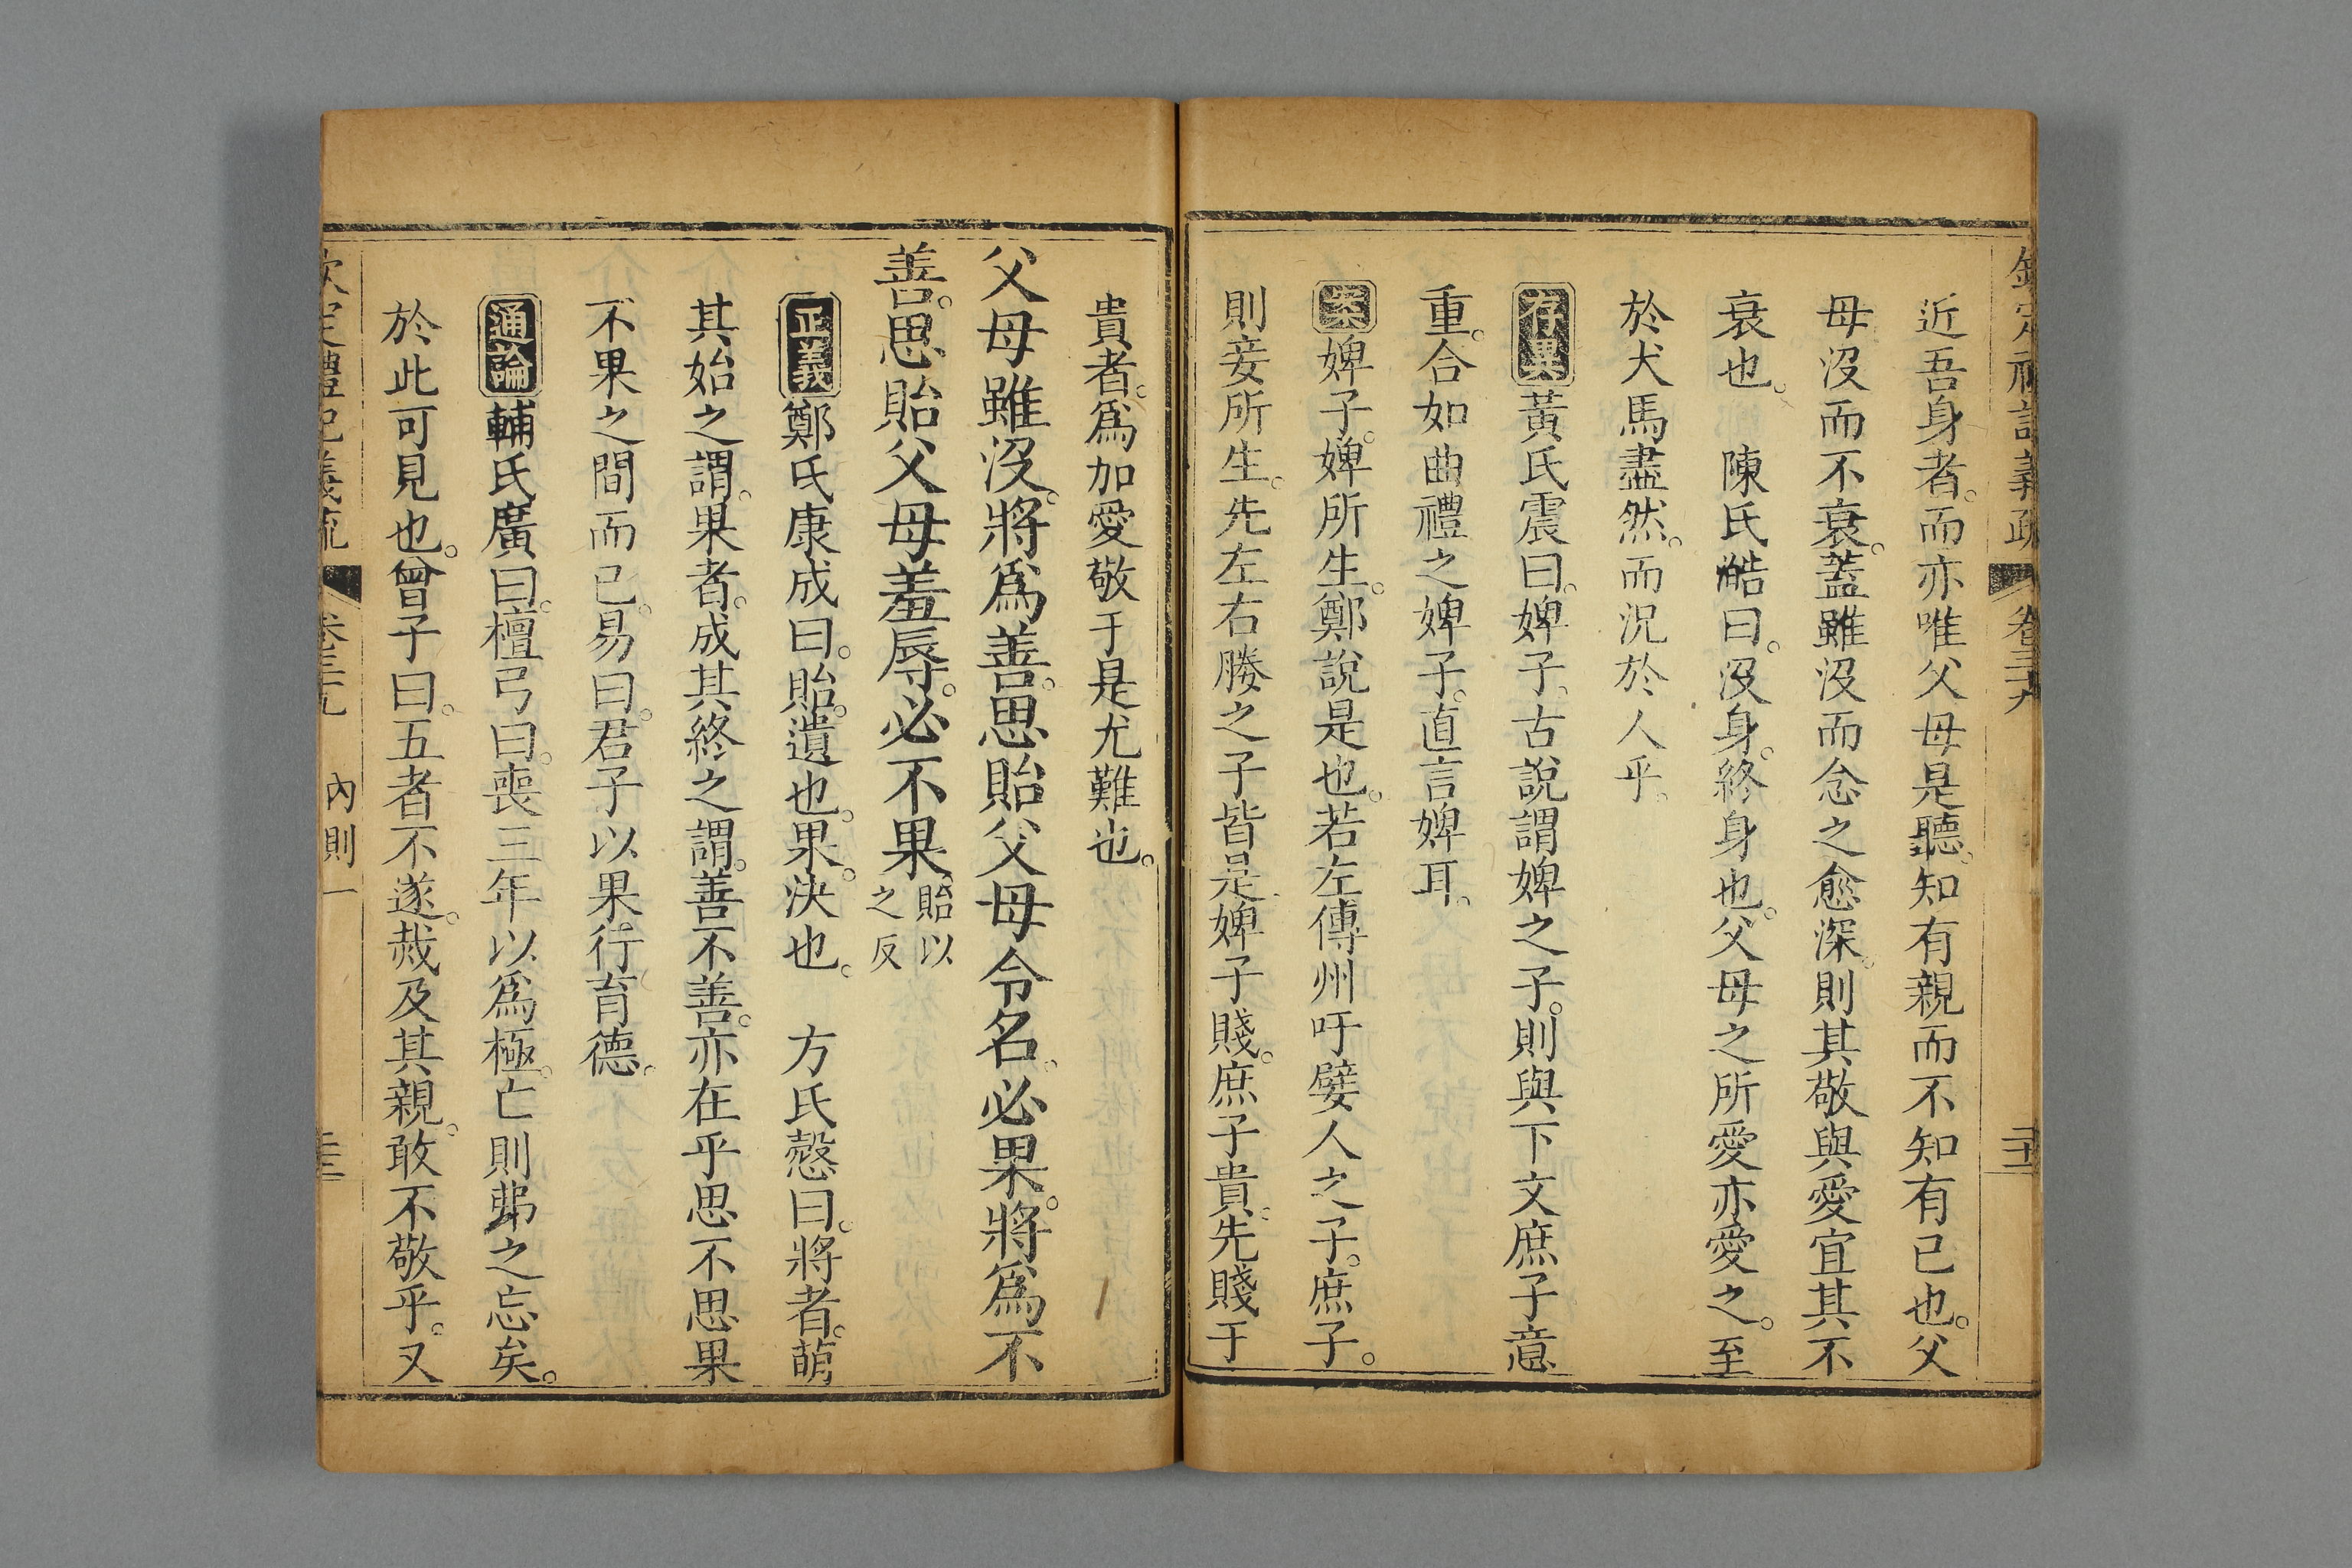 近吾身者。而亦唯父母是聽。知有親而不知有已也。父
母沒而不衰。蓋雖沒而念之愈深。則其敬與愛宜其不
衰也。　陳氏澔曰。沒身。終身也。父母之所愛亦愛之。至
於犬馬盡然。而況於人乎。
存異黃氏震曰。婢子。古說謂婢之子。則與下文庶子意
重。合如曲禮之婢子。直言婢耳。
案婢子。婢所生。鄭說是也。若左傳州吁嬖人之子。庶子。
則妾所生。先左右媵之子皆是。婢子賤。庶子貴。先賤于
貴者。爲加愛敬于是尤難也。
父母雖沒。將爲善。思貽父母令名。必果。將爲不
善。思貽父母羞辱。必不果。貽以之反
正義鄭氏康成曰。貽。遺也。果。決也。　方氏慤曰。將者。萌
其始之謂。果者。成其終之謂。善不善。亦在乎思不思果
不果之間而已。易曰。君子以果行育德。
通論輔氏廣曰。檀弓曰。喪三年以爲極。亡則弗之忘矣。
於此可見也。曾子曰。五者不遂。烖及其親。敢不敬乎。又
欽定禮記義疏　卷三十九　內則一